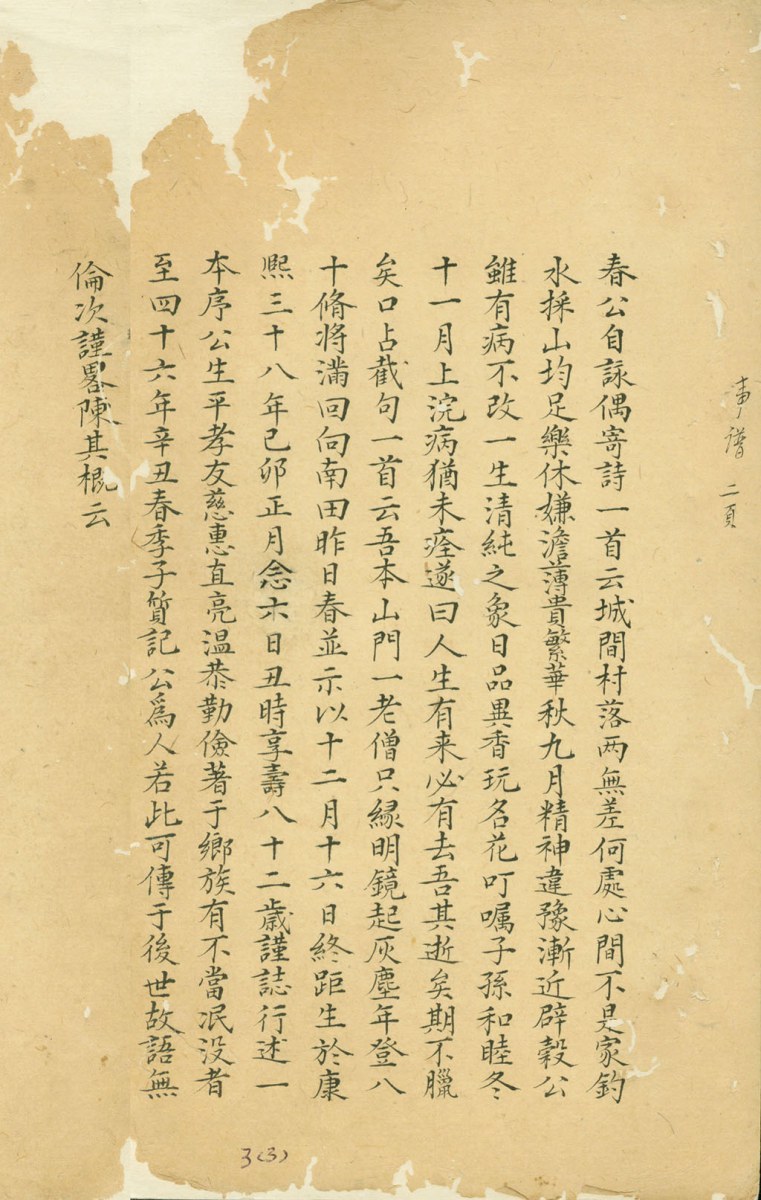 事譜 二頁
春公自詠偶寄詩一首云城間村落两無差何處心間不是家釣
水採山均足樂休嫌澹薄貴繁華秋九月精神違豫漸近辟穀公
雖有病不改一生清純之象日品異香玩名花叮嘱子孫和睦冬
十一月上浣病猶未痊遂曰人生有来必有去吾其逝矣期不臘
矣口占截句一首云吾本山門一老僧只緣明鏡起灰塵年登八
十脩将滿回向南田昨日春並示以十二月十六日終距生於康
熙三十八年己卯正月念六日丑時享壽八十二歲謹誌行述一
本序公生平孝友慈惠直亮温恭勤儉著于鄉族有不當泯没者
至四十六年辛丑春季子質記公爲人若此可傳于後世故語無
倫次謹畧陳其梶云
3(3)